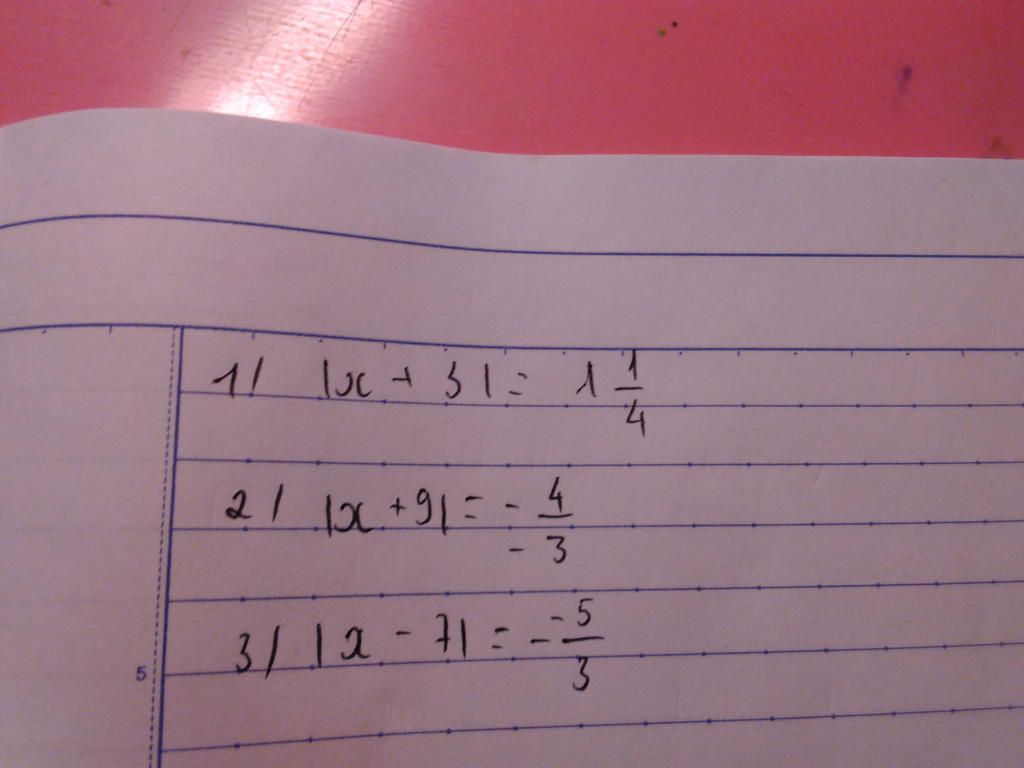 1/ |x + 3| = 1 1/4
2/ |x + 9| = - 4/-3
3/ |x - 7| = - -5/3
5